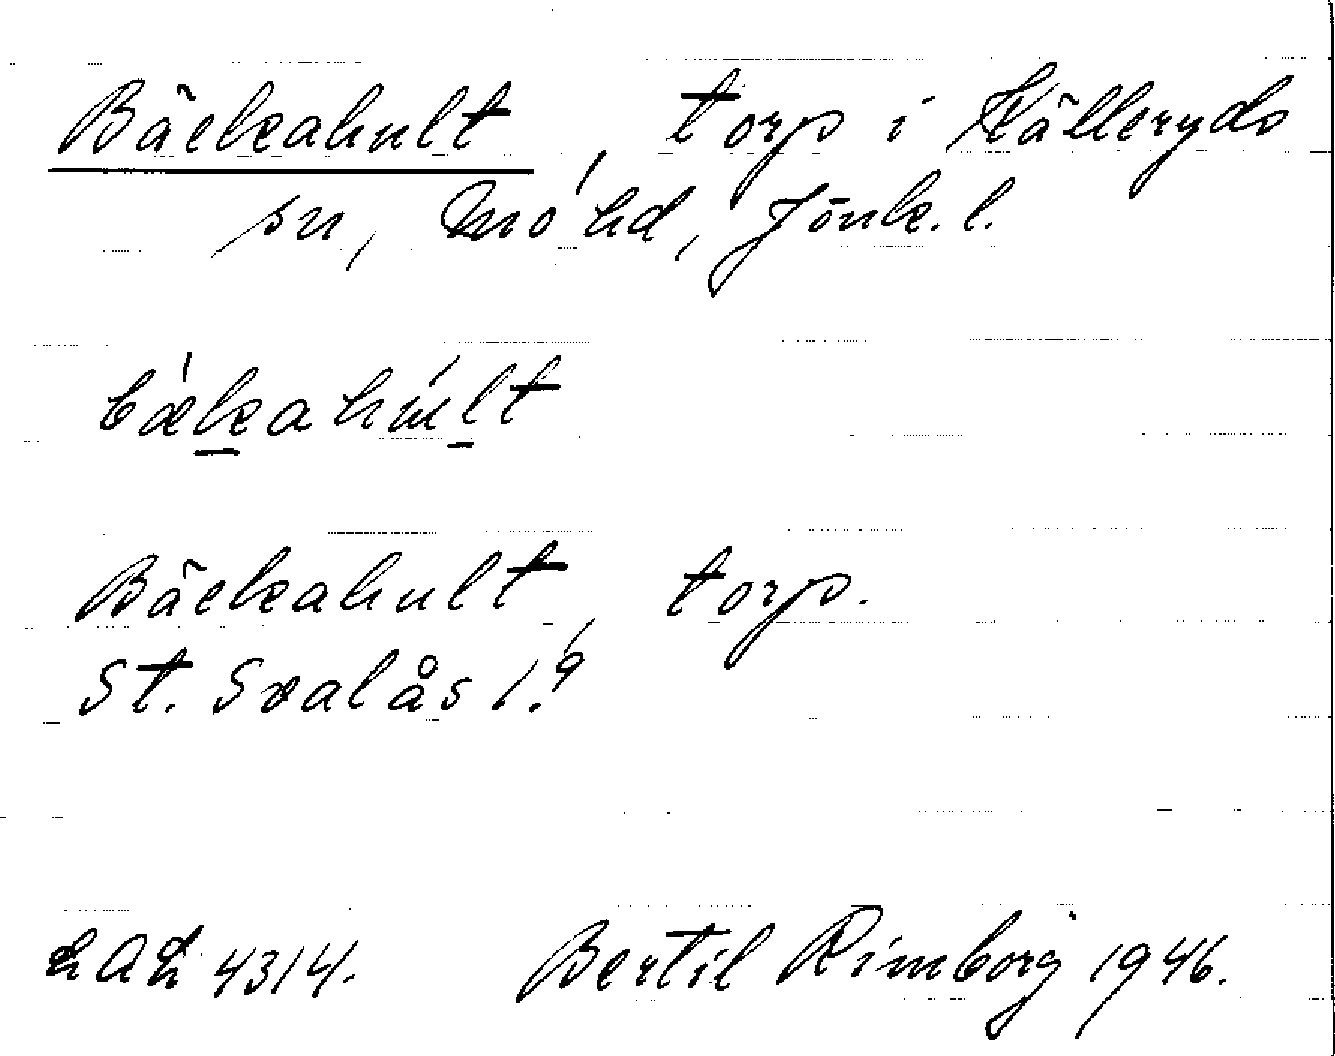 Bäckahult, torp i Källeryds
sn, Mo hd, Jönk. l.
bækahult
Bäckahult, torp.
St. Svalås 1:9
LAL 4314. Bertil Rimborg 1946.